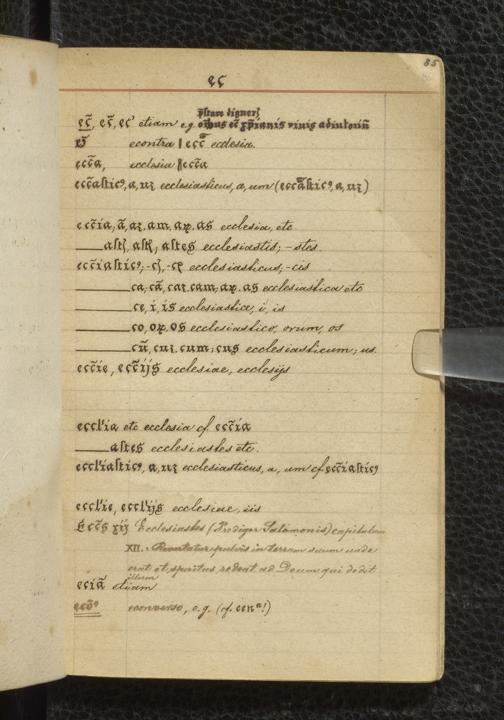 85
ec
p̄stare digner̄
ec̄, ec̄, ec' etiam e.g. oībus ec̄ xp̄ianis vivis adiutoriū
econtra | ecc̄ ecclesia.
ecc̄a, ecclesia ‖ ecc̄a
ecc̄astic⁹, a, uꝫ ecclesiasticus, a, um (ecc̄astic⁹, a, uꝫ)
ecc̄ia, ā, aꝫ, am, aꝝ, as ecclesia, etc
___astꝭ, astꝭ, astes ecclesiastis; -stes.
ecc̄iastic⁹, -cꝭ, -cꝫ ecclesiasticus, -cis
___ca, cā, caꝫ, cam, aꝝ, as ecclesiastica etc
___ce, i, is ecclesiastice, i, is
___co, oꝝ, os ecclesiastico, orum, os
___cū, cuꝫ, cum; cus ecclesiasticum; us.
ecc̄ie, ecc̄ijs ecclesiae, ecclesijs
eccl'ia etc ecclesia cf. ecc̄ia
___astes ecclesiastes etc.
eccl'iastic⁹, a, uꝫ ecclesiasticus, a, um cf ecc̄iastic⁹
eccl'ie, eccl'ijs ecclesiae, iis
Ecc̄s xij Ecclesiastes (Prediger Salamonis) capitulum
XII. Revertatur pulvis in terram suam unde
erat et spiritus redeat ad Deum qui dedit
illum
eciā etiam
eco⁰ econverso, e.g. (cf. econᵃ!)